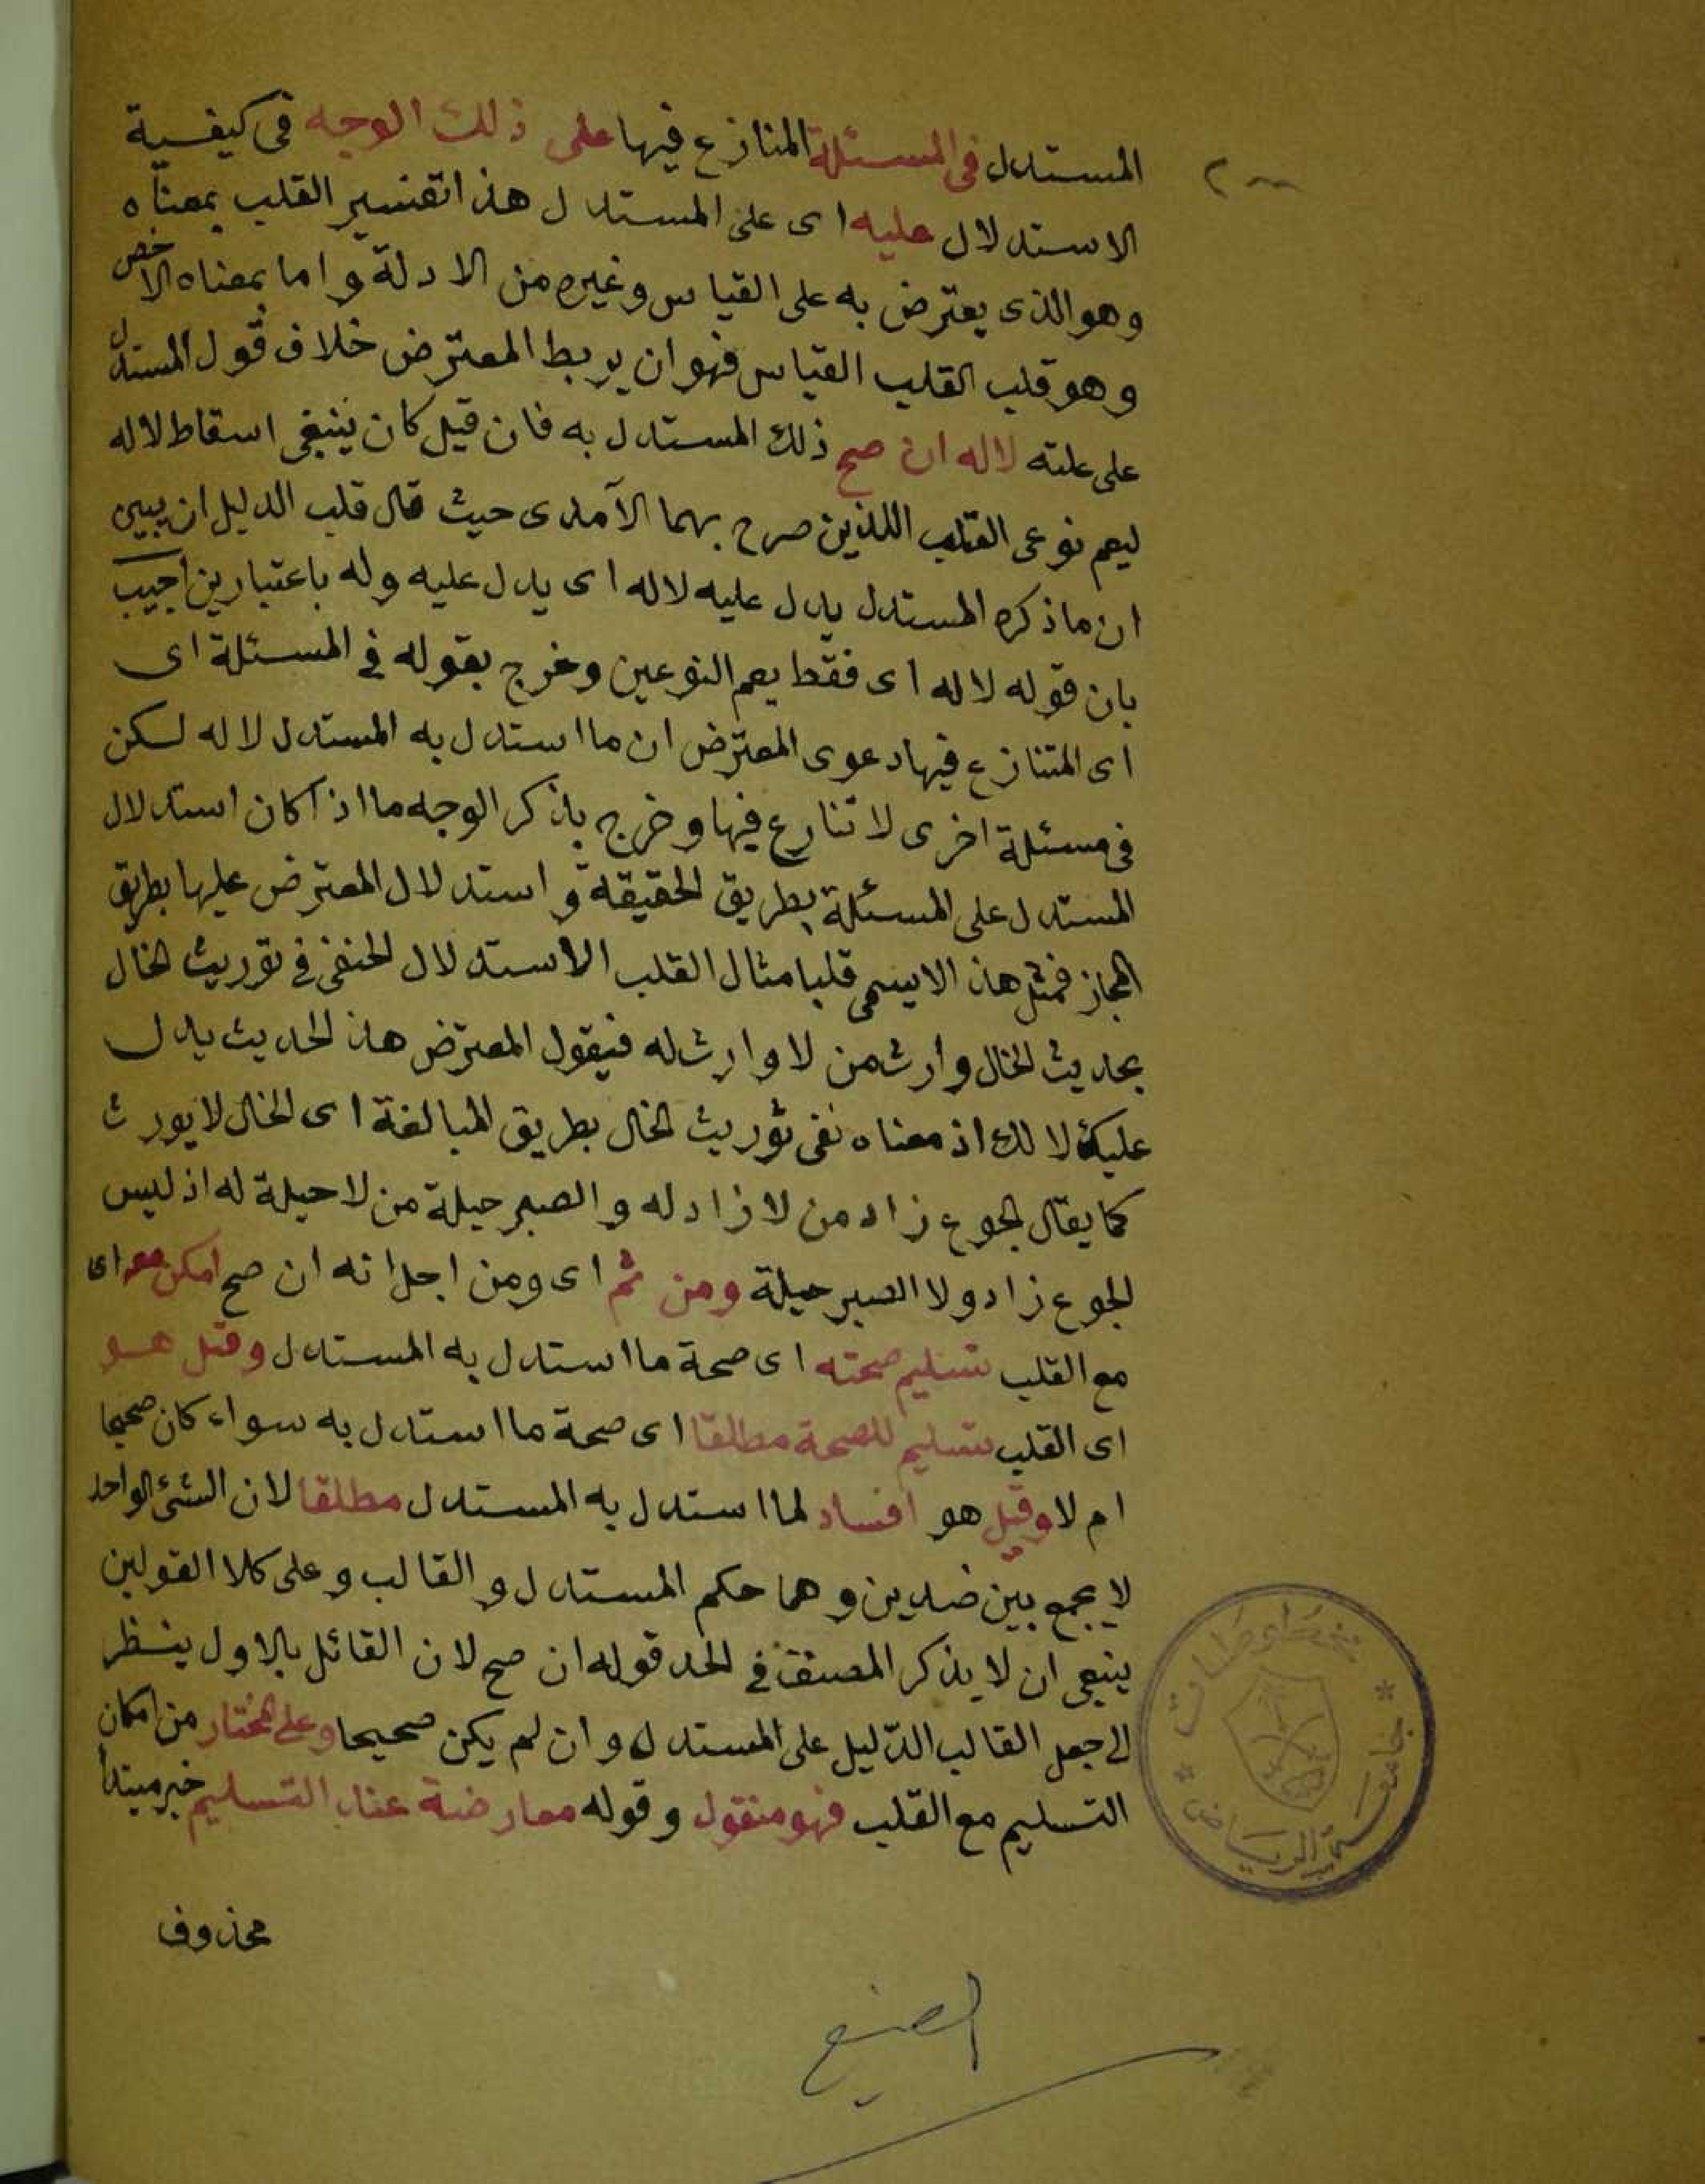 المستدل فى المسئلة المنازع فيها على ذلك الوجه فى كيفية
الاستدلال عليه اى على المستدل هذا تفسير القلب بمعناه
وهو الذى يعترض به على القياس وغيره من الادلة واما بمعناه الاخص
وهو قلب القلب القياس فهو ان يربط المعترض خلاف قول المستدل
على علته لا له ان صح ذلك المستدل به فان قيل كان ينبغى اسقاط لا له
ليعم نوعى القلب اللذين صرح بهما الآمدى حيث قال قلب الدليل ان يبين
ان ما ذكره المستدل يدل عليه لا له اى يدل عليه وله باعتبارين اجيب
بان قوله لا له اى فقط يعم النوعين وخرج بقوله فى المسئلة اى
اى المتنازع فيها دعوى المعترض ان ما استدل به المستدل لا له لكن
فى مسئلة اخرى لا تنارع فيها وخرج بذكر الوجه ما اذا كان استدلال
المستدل على المسئلة بطريق الحقيقة واستدلال المعترض عليها بطريق
المجاز فمثل هذا لا يسمى قلبا مثال القلب الاستدلال الحنفى فى توريث الخال
بحديث الخال وارث من لا وارث له فيقول المعترض هذا الحديث يدل
عليك لا لك اذ معناه نفى توريث الخال بطريق المبالغة اى الخال لا يورث
كما يقال الجوع زاد من لا زاد له والصبر حيلة من لا حيلة له اذ ليس
الجوع زاد ولا الصبر حيلة ومن ثم اى ومن اجل انه ان صح امكن معه اى
مع القلب تسليم صحته اى صحة ما استدل به المستدل وقيل هو
اى القلب تسليم للصحة مطلقا اى صحة ما استدل به سواء كان صحيحا
ام لا وقيل هو افساد لما استدل به المستدل مطلقا لان الشئ الواحد
لا يجمع بين ضدين وهما حكم المستدل والقالب وعلى كلا القولين
ينبغى ان لا يذكر المصنف فى الحد قوله ان صح لان القائل بالاول ينظر
الى جعل القالب الدليل على المستدل وان لم يكن صحيحا وعلى المختار من امكان
التسليم مع القلب فهو منقول وقوله معارضة عند التسليم خبر مبتدأ
محذوف
مخطوطات
جامعة الرياض